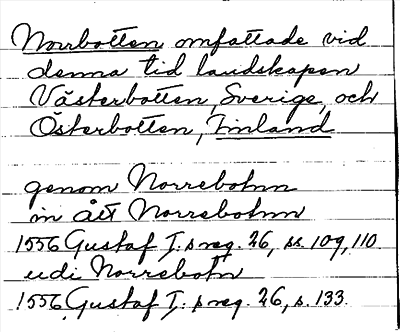 Norrbotten omfattade vid
denna tid landskapen
Västerbotten, Sverige, och
Österbotten, Finland
genom Norrebohnn
in ått Norrebohnn
1556 Gustaf I: s reg. 26, ss. 109, 110.
udi Norrebotn
1556 Gustaf I: s reg. 26, s. 133.